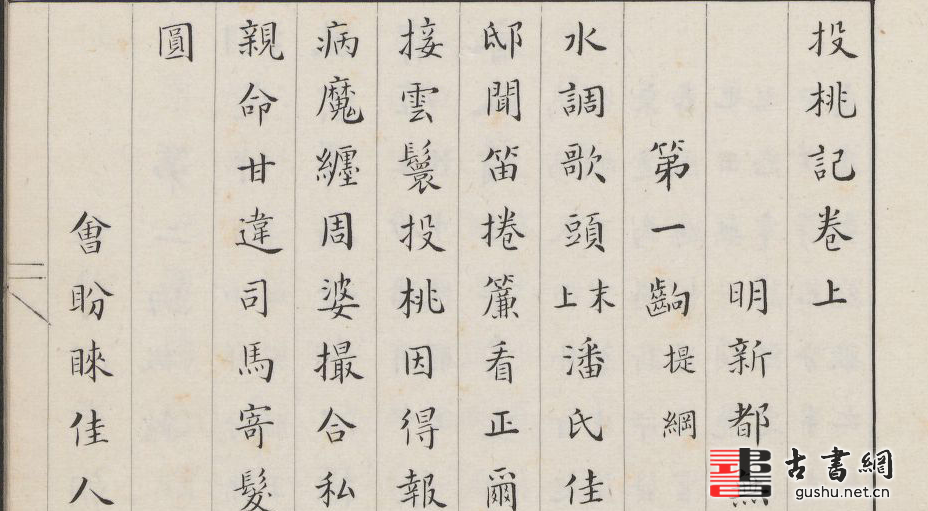 投桃記卷上
明新都
第一齣 提綱
水調歌頭末上潘氏佳
邸聞笛捲簾看正爾
接雲鬟投桃因得報
病魔纏周婆撮合私
親命甘違司馬寄髮
圓
會盼睞佳人
古書網
gushu.net.cn